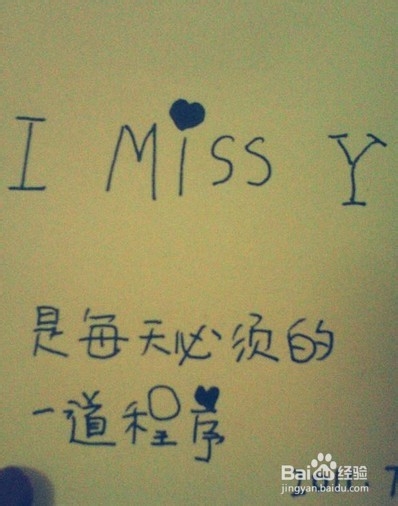 I MiSS Y
是每天必须的
一道程序
Baidu经验
jingyan.baidu.com